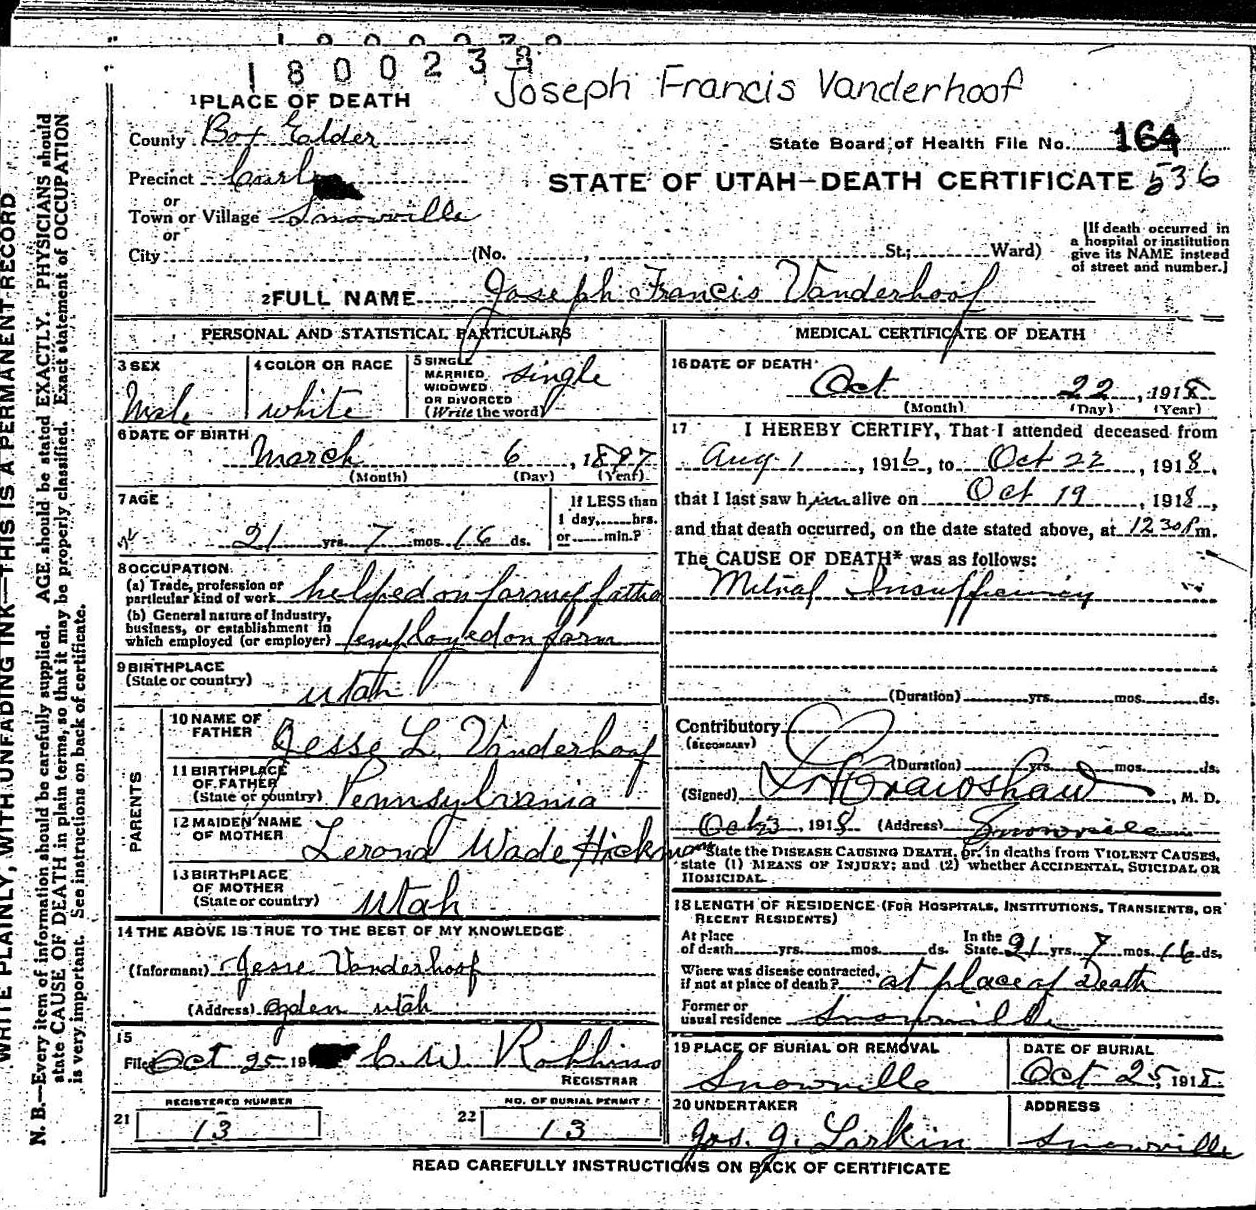 1800238
Joseph Francis Vanderhoof
1 PLACE OF DEATH
County Box Elder
State Board of Health File No. 164
Precinct Curlew
STATE OF UTAH—DEATH CERTIFICATE 536
or
Town or Village Snowville
or
City (No. , St.; Ward)
[If death occurred in a hospital or institution give its NAME instead of street and number.]
2 FULL NAME Joseph Francis Vanderhoof
PERSONAL AND STATISTICAL PARTICULARS
3 SEX
Male
4 COLOR OR RACE
white
5 SINGLE
MARRIED
WIDOWED
OR DIVORCED
(Write the word)
single
6 DATE OF BIRTH
March 6, 1897
(Month) (Day) (Year)
7 AGE
21 yrs. 7 mos. 16 ds.
If LESS than
1 day, hrs.
or min.?
8 OCCUPATION
(a) Trade, profession or
particular kind of work helped on farm of father
(b) General nature of industry,
business, or establishment in
which employed (or employer) employed on farm
9 BIRTHPLACE
(State or country)
Utah
PARENTS
10 NAME OF
FATHER Jesse L. Vanderhoof
11 BIRTHPLACE
OF FATHER
(State or country) Pennsylvania
12 MAIDEN NAME
OF MOTHER Lerona Wade Hickman
13 BIRTHPLACE
OF MOTHER
(State or country) Utah
14 THE ABOVE IS TRUE TO THE BEST OF MY KNOWLEDGE
(Informant) Jesse Vanderhoof
(Address) Ogden Utah
15
Filed Oct 25 19 C. W. Robbins
REGISTRAR
REGISTERED NUMBER
21 13
NO. OF BURIAL PERMIT
22 13
MEDICAL CERTIFICATE OF DEATH
16 DATE OF DEATH
Oct 22, 1918
(Month) (Day) (Year)
17 I HEREBY CERTIFY, That I attended deceased from
Aug 1, 1916, to Oct 22, 1918,
that I last saw him alive on Oct 19 1918,
and that death occurred, on the date stated above, at 12 30 P m.
The CAUSE OF DEATH* was as follows:
Mitral Insufficiency
(Duration) yrs. mos. ds.
Contributory
(SECONDARY)
(Duration) yrs. mos. ds.
(Signed) Crawshaw, M. D.
Oct 23, 1918 (Address) Snowville
*State the DISEASE CAUSING DEATH, or, in deaths from VIOLENT CAUSES,
state (1) MEANS OF INJURY; and (2) whether ACCIDENTAL, SUICIDAL OR
HOMICIDAL.
18 LENGTH OF RESIDENCE (FOR HOSPITALS, INSTITUTIONS, TRANSIENTS, OR
RECENT RESIDENTS)
At place
of death yrs. mos. ds.
In the
State 21 yrs. 7 mos. 16 ds.
Where was disease contracted,
if not at place of death? at place of Death
Former or
usual residence Snowville
19 PLACE OF BURIAL OR REMOVAL
Snowville
DATE OF BURIAL
Oct 25, 1918.
20 UNDERTAKER
Jos. J. Larkin
ADDRESS
Snowville
READ CAREFULLY INSTRUCTIONS ON BACK OF CERTIFICATE
WRITE PLAINLY, WITH UNFADING INK—THIS IS A PERMANENT RECORD
N. B.—Every item of information should be carefully supplied. AGE should be stated EXACTLY. PHYSICIANS should
state CAUSE OF DEATH in plain terms, so that it may be properly classified. Exact statement of OCCUPATION
is very important. See instructions on back of certificate.